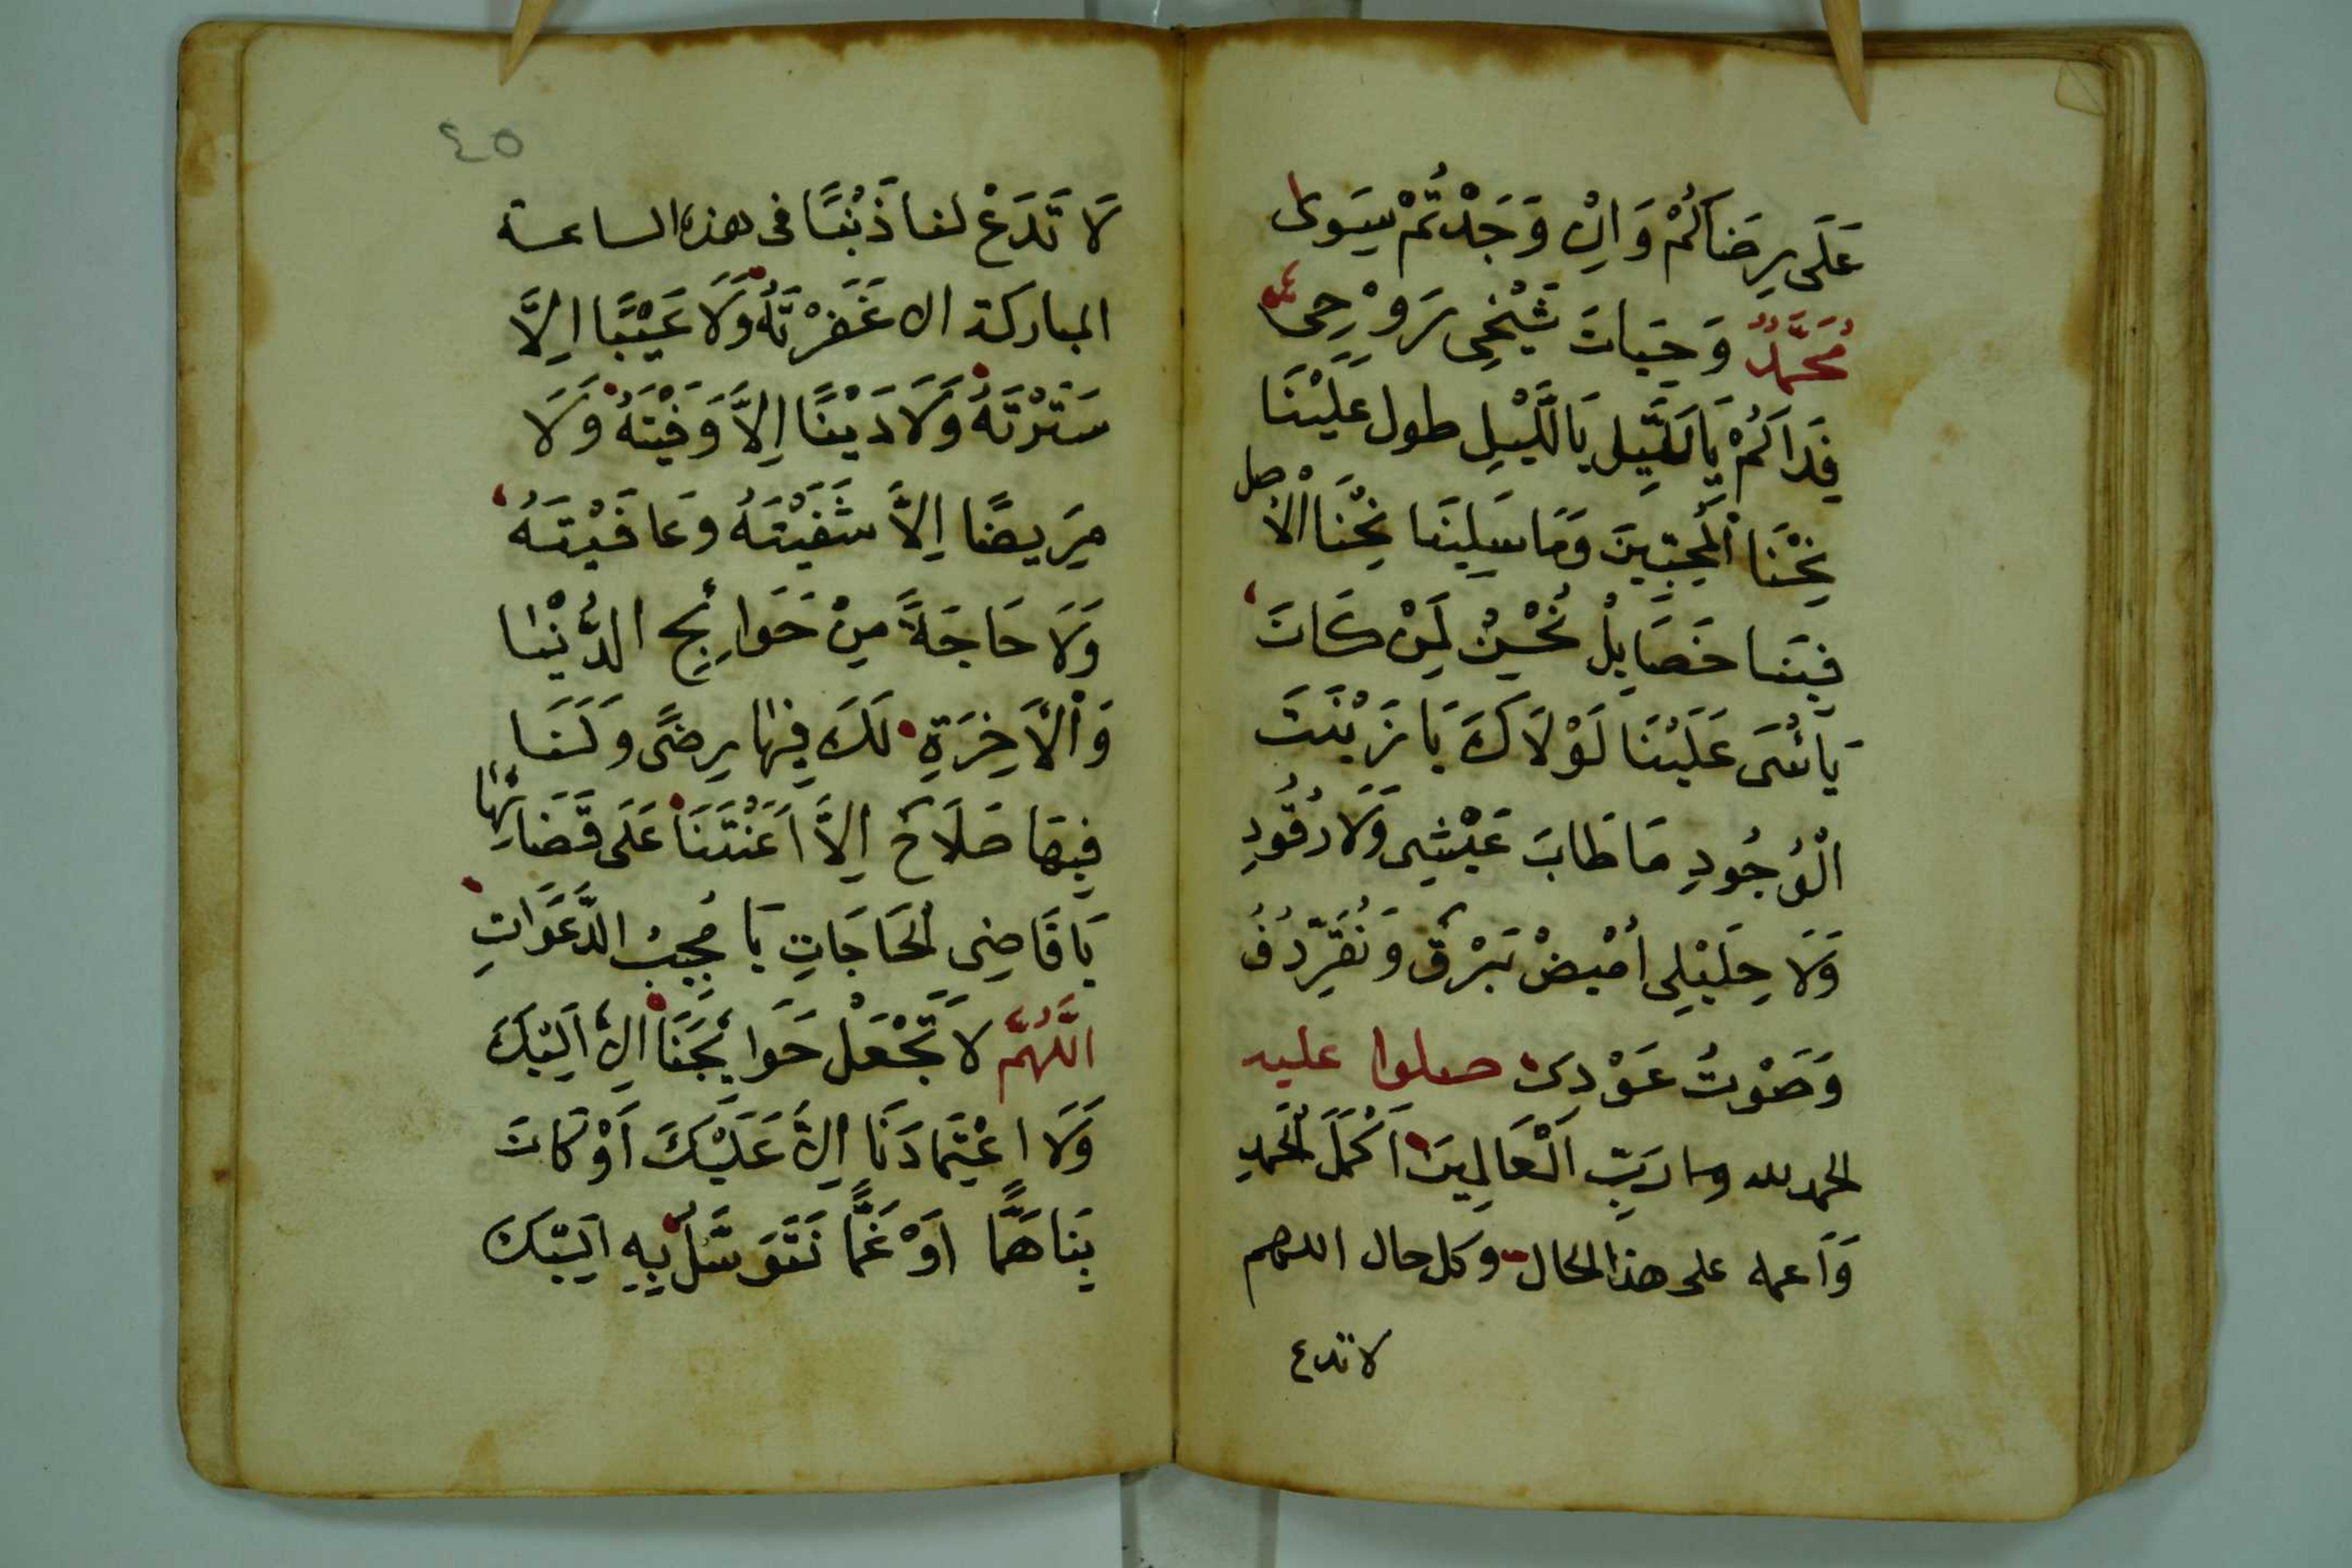 عَلَى رِضَاكُمْ وَاِنْ وَجَدْتُمْ سِوَى
مُحَمَّدْ وَحَيَاتْ شَيْخِى رَوْحِى
فِدَاكُمْ يَا لَيْلِ يَا لَّيْلِ طول عَلَيْنَا
نِحْنَا الْمُحِبِّينَ وَمَا سَلِينَا نِحْنَا الْاصل
فِينَا خَصَايِلْ نُحْسِنْ لِمَنْ كَانَ
يَأْسَى عَلَيْنَا لَوْلَاكَ يَا زَيْنَتَ
الْوُجُودِ مَا طَابَ عَيْشِى وَلَا رُقُودِ
وَلَا حِلَيْلِى اُمْيِضْ بَرْقٌ وَنُقَرِّدُفُ
وَصَوْتُ عَوْدِى صلوا عليه
الحمد لله رَبِّ اَلْعَالِمِينَ اَكْمَلَ الْحَمْدِ
وَاَعمه على هذا الحال وكل حال اللهم
لا تدع
٤٥
لَا تَدَعْ لنا ذَنْبًا فى هذه الساعة
المباركة الا غَفَرْتَهُ وَلَا عَيْبًا اِلَّا
سَتَرْتَهُ وَلَا دَيْنًا اِلَّا وَفَيْتَهُ وَلَا
مَرِيضًا اِلَّا شَفَيْتَهُ وَعَافَيْتَهُ
وَلَا حَاجَةً مِنْ حَوَائِجِ الدُّنْيَا
وَاْلْاَخِرَةِ لَكَ فِيهَا رِضًى وَلَنَا
فِيهَا صَلَاحٌ اِلَّا اَعَنْتَنَا عَلَى قَضَائِهَا
يَا قَاضِى الحَاجَاتِ يَا مُجِيبْ الدَّعَوَاتِ
اَللَّهُمَّ لَا تَجْعَلْ حَوَائِجَنَا اِلَّا اَلَيْكَ
وَلَا اعْتِمَادَنَا اِلَّا عَلَيْكَ اَوْ كَانَ
بِنَا هَمًّا اَوْ غَمًّا نَتَوَسَّلُ بِهِ اَلَيْكَ